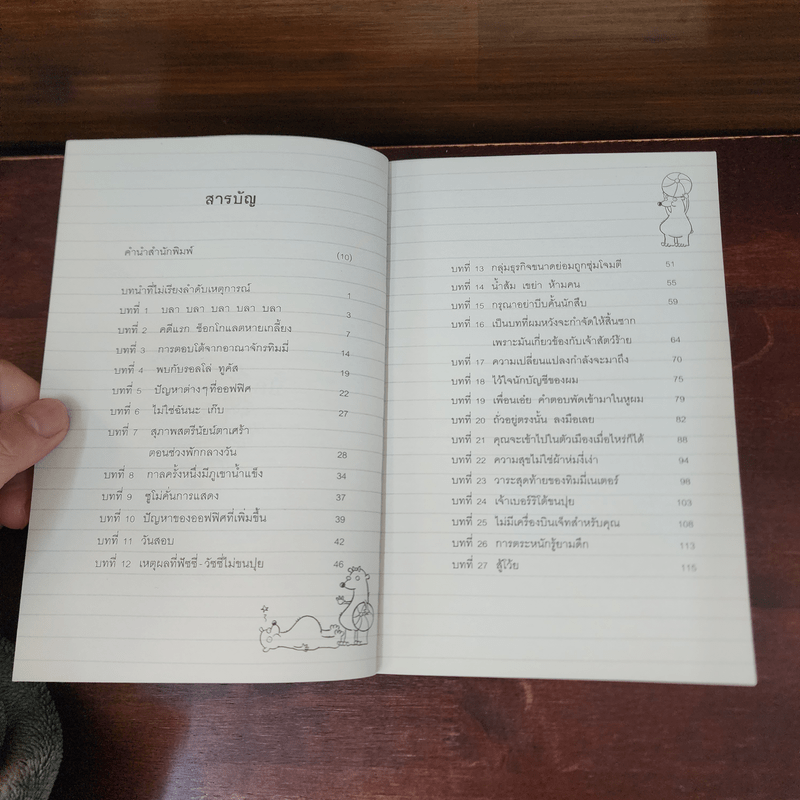 สารบัญ
คำนำสำนักพิมพ์ (10)
บทนำที่ไม่เรียงลำดับเหตุการณ์ 1
บทที่ 1 บลา บลา บลา บลา บลา 3
บทที่ 2 คดีแรก ช็อกโกแลตหายเกลี้ยง 7
บทที่ 3 การตอบโต้จากอาณาจักรทิมมี่ 14
บทที่ 4 พบกับรอลโล่ ทูคัส 19
บทที่ 5 ปัญหาต่างๆ ที่ออฟฟิศ 22
บทที่ 6 ไม่ใช่ฉันนะ เก๊บ 27
บทที่ 7 สุภาพสตรีนัยน์ตาเศร้า
ตอนช่วงพักกลางวัน 28
บทที่ 8 กาลครั้งหนึ่งมีภูเขาน้ำแข็ง 34
บทที่ 9 ซูโม่คั่นการแสดง 37
บทที่ 10 ปัญหาของออฟฟิศที่เพิ่มขึ้น 39
บทที่ 11 วันสอบ 42
บทที่ 12 เหตุผลที่ฟัซซี่-วัซซี่ไม่ขนปุย 46
บทที่ 13 กลุ่มธุรกิจขนาดย่อมถูกซุ่มโจมตี 51
บทที่ 14 น้ำส้ม เขย่า ห้ามคน 55
บทที่ 15 กรุณาอย่าบีบคั้นนักสืบ 59
บทที่ 16 เป็นบทที่ผมหวังจะกำจัดให้สิ้นซาก
เพราะมันเกี่ยวข้องกับเจ้าสัตว์ร้าย 64
บทที่ 17 ความเปลี่ยนแปลงกำลังจะมาถึง 70
บทที่ 18 ไว้ใจนักบัญชีของผม 75
บทที่ 19 เพื่อนเอ๋ย คำตอบพัดเข้ามาในหูผม 79
บทที่ 20 ถั่วอยู่ตรงนั้น ลงมือเลย 82
บทที่ 21 คุณจะเข้าไปในตัวเมืองเมื่อไหร่ก็ได้ 88
บทที่ 22 ความสุขไม่ใช่ผ้าห่มงี่เง่า 94
บทที่ 23 วาระสุดท้ายของทิมมี่เนเตอร์ 98
บทที่ 24 เจ้าเบอร์ริโต้ขนปุย 103
บทที่ 25 ไม่มีเครื่องบินเจ็ทสำหรับคุณ 108
บทที่ 26 การตระหนักรู้ยามดึก 113
บทที่ 27 สู้โว้ย 115